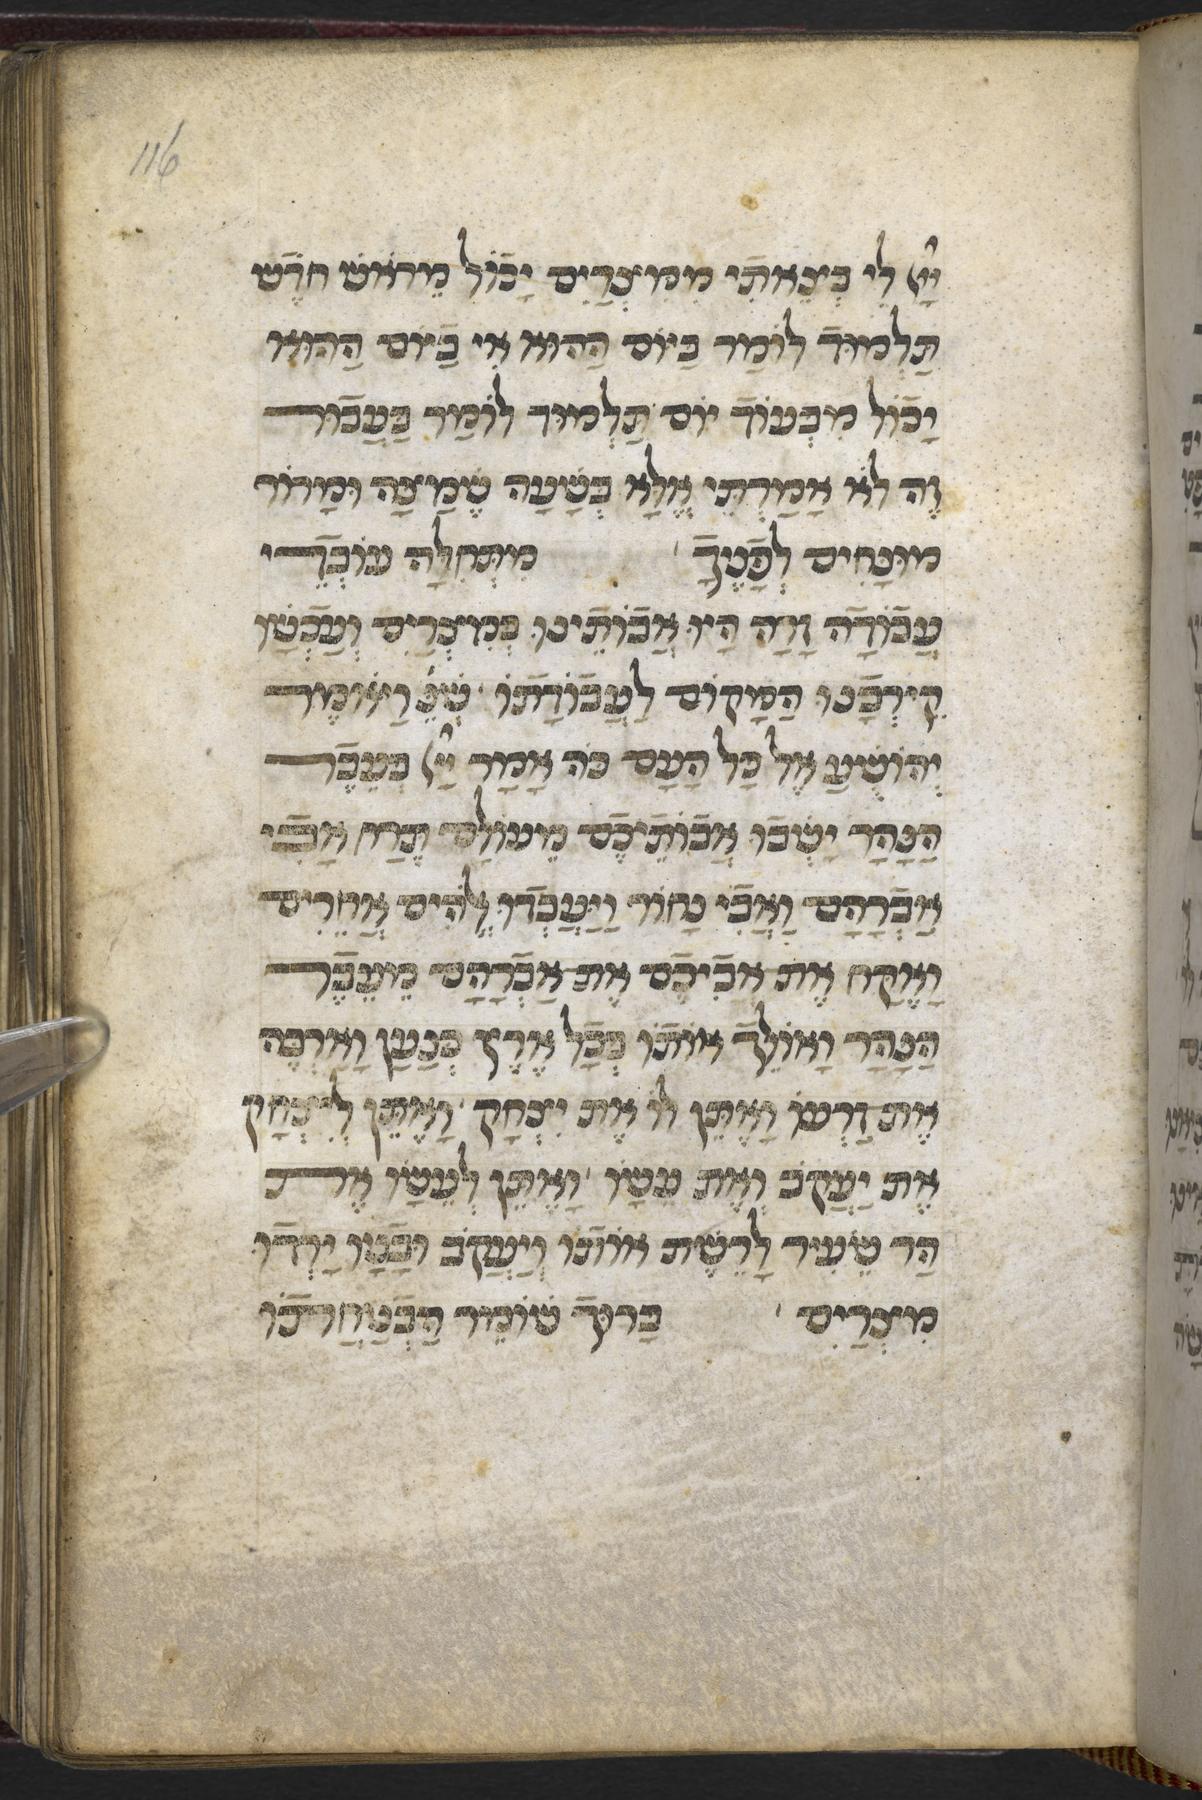 116
יְיָ לִי בְּצֵאתִי מִמִּצְרַיִם יָכוֹל מֵרֹאשׁ חֹדֶשׁ
תַּלְמוּד לוֹמַר בַּיּוֹם הַהוּא אִי בַּיּוֹם הַהוּא
יָכוֹל מִבְּעוֹד יוֹם תַּלְמוּד לוֹמַר בַּעֲבוּר
זֶה לֹא אָמַרְתִּי אֶלָּא בְּשָׁעָה שֶׁמַּצָּה וּמָרוֹר
מוּנָּחִים לְפָנֶיךָ מִתְּחִלָּה עוֹבְדֵי
עֲבוֹדָה זָרָה הָיוּ אֲבוֹתֵינוּ בְּמִצְרַיִם וְעַכְשָׁו
קֵירְבָנוּ הַמָּקוֹם לַעֲבוֹדָתוֹ שֶׁנֶּ וַיֹּאומֶר
יְהוֹשֻׁעַ אֶל כָּל הָעָם כֹּה אָמַר יְיָ בְּעֵבֶר
הַנָּהָר יָשְׁבוּ אֲבוֹתֵיכֶם מֵעוֹלָם תֶּרַח אֲבִי
אַבְרָהָם וַאֲבִי נָחוֹר וַיַּעֲבְדוּ אֱלֹהִים אֲחֵרִים
וָאֶקַּח אֶת אֲבִיכֶם אֶת אַבְרָהָם מֵעֵבֶר
הַנָּהָר וָאוֹלֵךְ אוֹתוֹ בְּכָל אֶרֶץ כְּנַעַן וָאַרְבֶּה
אֶת זַרְעוֹ וָאֶתֵּן לוֹ אֶת יִצְחָק וָאֶתֵּן לְיִצְחָק
אֶת יַעֲקֹב וְאֶת עֵשָׂו וָאֶתֵּן לְעֵשָׂו אֶת
הַר שֵׂעִיר לָרֶשֶׁת אוֹתוֹ וְיַעֲקֹב וּבָנָיו יָרְדוּ
מִצְרַיִם בָּרוּךְ שׁוֹמֵר הַבְטָחָתוֹ